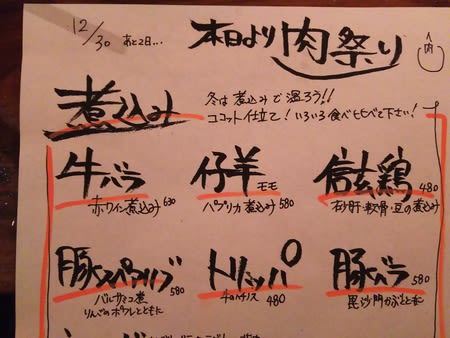 12/30 あと2日...
本日より肉祭り
肉
煮込み
冬は煮込みで温ろう!!
ココット仕立て!いろいろ食べ比べて下さい!
牛バラ
赤ワイン煮込み 630
仔羊モモ
パプリカ煮込み 580
信玄鶏 480
砂肝・軟骨・豆の煮込み
豚スペアリブ
バルサミコ煮 580
りんごのポワレとともに
トリッパ
480
豚バラ 580
毘沙門かぶとともに